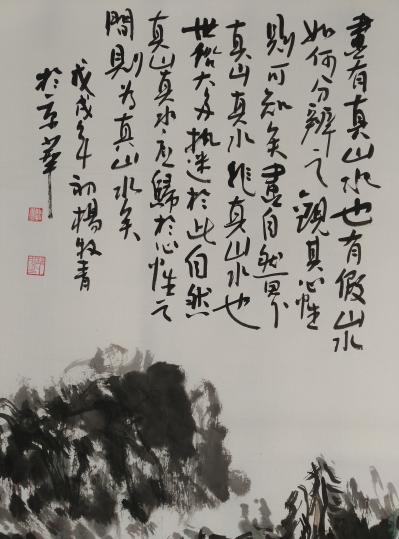 畫有真山水也有假山水
如何分辨之觀其心性
則可知矣畫自然界
真山真水非真山水也
世俗大多執迷於此自然
真山真水应歸於心性之
間則为真山水矣
戊戌年初楊牧青
於京華